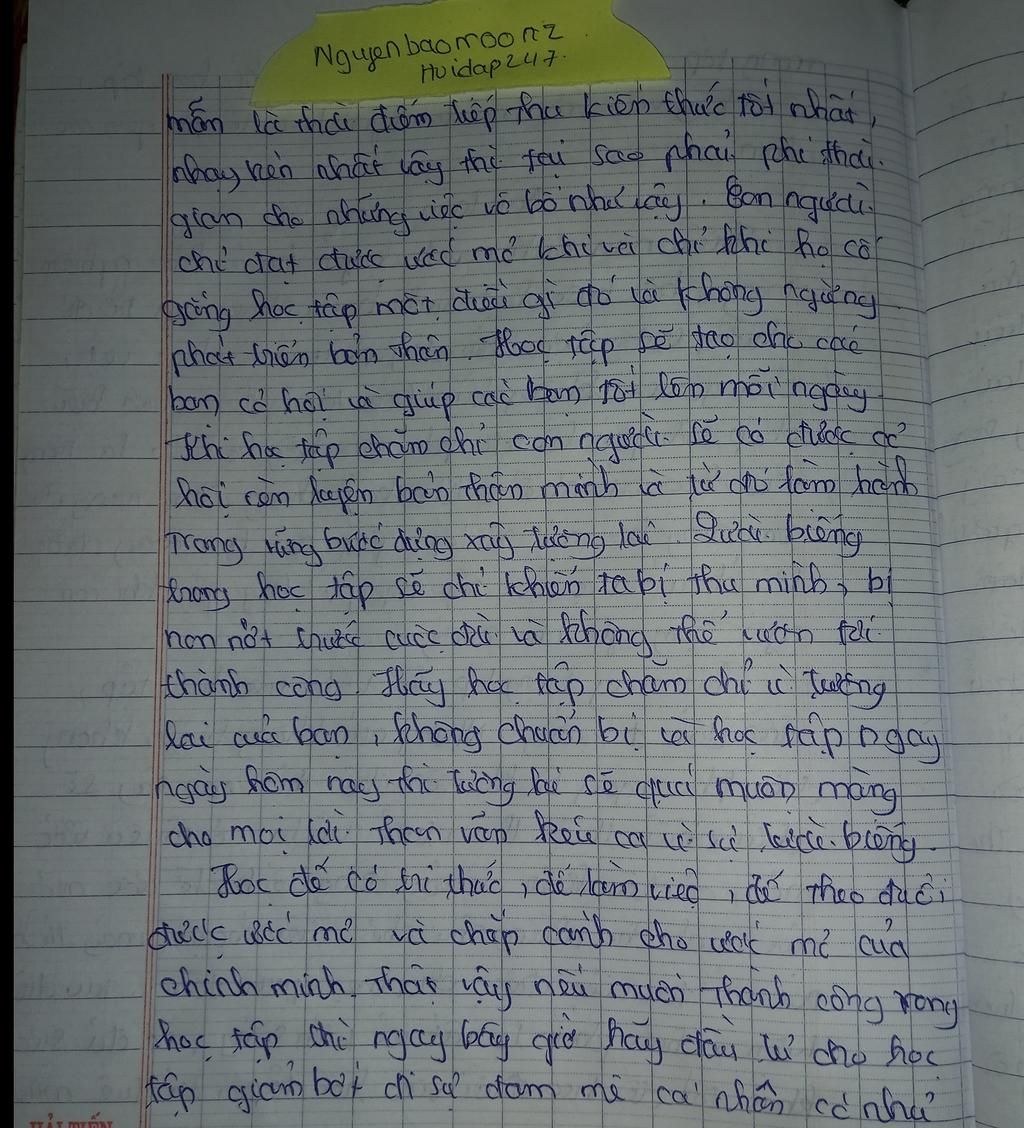 Nguyenbaomoonz
Hoidap247.
mẫn là thời điểm tiếp thu kiến thức tốt nhất,
nhạy bén nhất vậy thì tại sao phải phí thời
gian cho những việc vô bổ như vậy. Con người
chỉ đạt được ước mơ khi và chỉ khi họ cố
gắng học tập một điều gì đó và không ngừng
phát triển bản thân. Học tập sẽ tạo cho các
bạn cơ hội và giúp các bạn tốt lên mỗi ngày
Khi học tập chăm chỉ con người sẽ có được cơ
hội rèn luyện bản thân mình và từ đó làm hành
trang vững bước dựng xây tương lai. Lười biếng
trong học tập sẽ chỉ khiến ta bị thu mình, bị
non nớt trước cuộc đời và không thể vươn tới
thành công. Hãy học tập chăm chỉ vì tương
lai của bạn, không chuẩn bị và học tập ngay
ngày hôm nay thì tương lai sẽ quá muộn màng
cho mọi lời than vãn kêu ca vì sự lười biếng.
Học để có tri thức, để làm việc, để theo đuổi
được ước mơ và chắp cánh cho ước mơ của
chính mình. Thật vậy nếu muốn thành công trong
học tập thì ngay bây giờ hãy đầu tư cho học
tập giảm bớt đi sự đam mê cá nhân có như
HẢI TIẾN